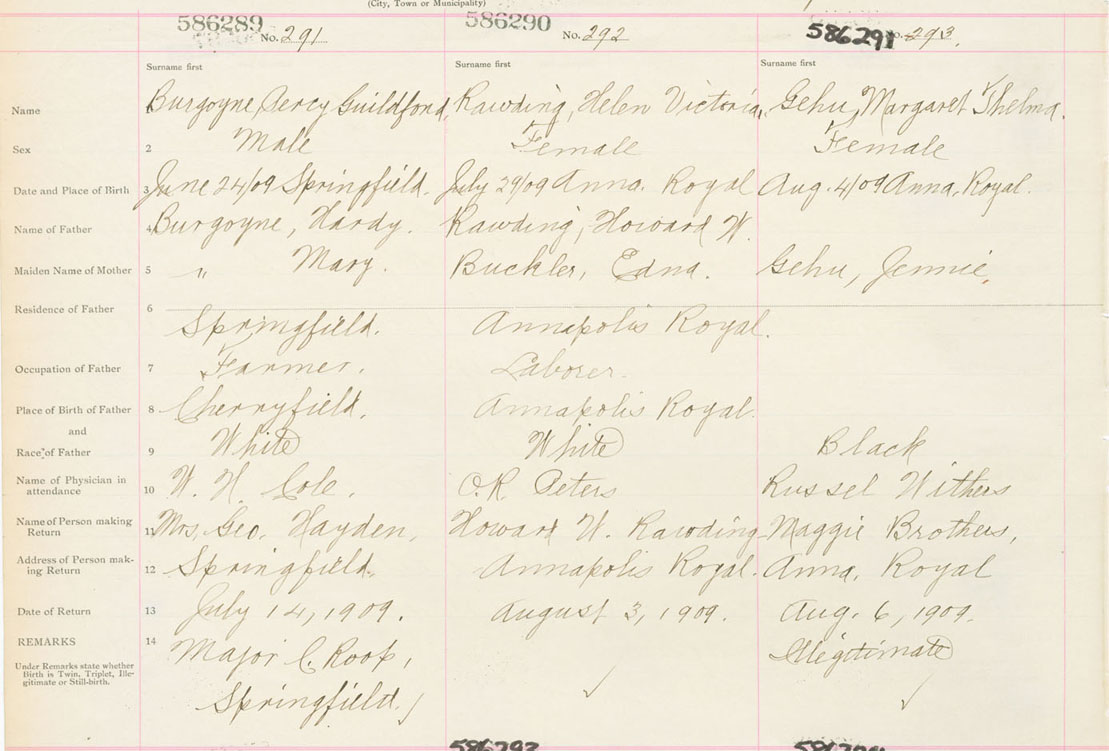 (City, Town or Municipality)
586289 No. 291 586290 No. 292 586291 No. 293.
Surname first Surname first Surname first
Name 1 Burgoyne, Percy Guildford, Rawding, Helen Victoria, Gehu, Margaret Thelma.
Sex 2 Male Female Female
Date and Place of Birth 3 June 24/09 Springfield. July 29/09 Anna. Royal Aug. 4/09 Anna, Royal.
Name of Father 4 Burgoyne, Hardy. Rawding, Howard W.
Maiden Name of Mother 5 " Mary. Buckler, Edna. Gehu, Jennie,
Residence of Father 6 Springfield. Annapolis Royal.
Occupation of Father 7 Farmer. Laborer.
Place of Birth of Father 8 Cherryfield. Annapolis Royal.
and
Race of Father 9 White White Black
Name of Physician in
attendance 10 W. H. Cole. O.R. Peters Russel Withers
Name of Person making
Return 11 Mrs. Geo. Hayden, Howard W. Rawding Maggie Brothers,
Address of Person mak-
ing Return 12 Springfield. Annapolis Royal. Anna, Royal
Date of Return 13 July 14, 1909. August 3, 1909. Aug. 6, 1909.
REMARKS 14 Major C. Roop, Illegitimate
Under Remarks state whether
Birth is Twin, Triplet, Ille-
gitimate or Still-birth.
Springfield.